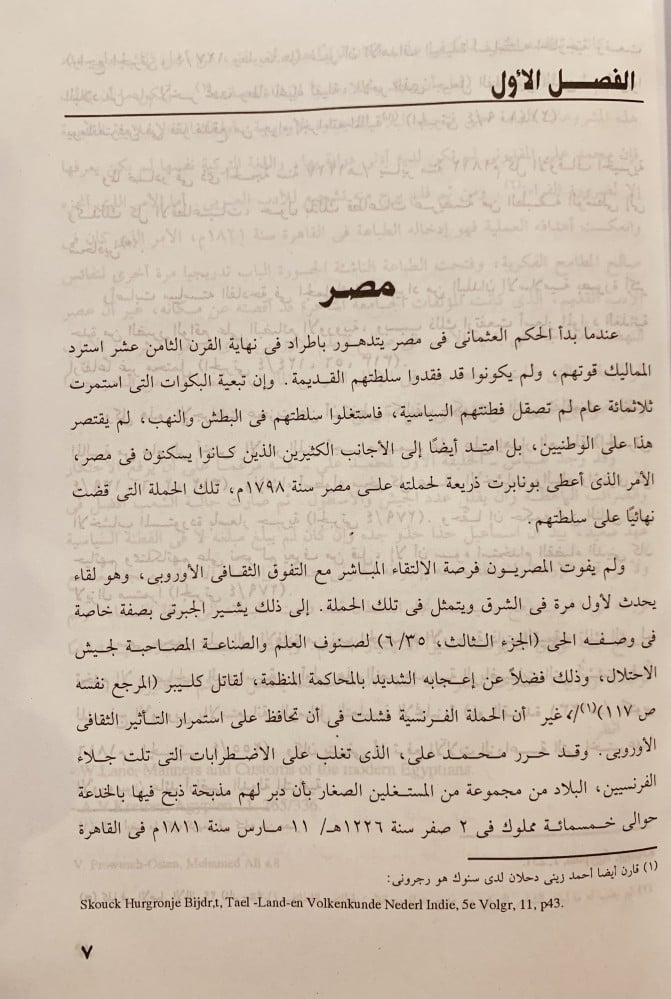 الفصل الأول
مصر
عندما بدأ الحكم العثمانى فى مصر يتدهور باطراد فى نهاية القرن الثامن عشر استرد
المماليك قوتهم، ولم يكونوا قد فقدوا سلطتهم القديمة. وإن تبعية البكوات التى استمرت
ثلاثمائة عام لم تصقل فطنتهم السياسية، فاستغلوا سلطتهم فى البطش والنهب، لم يقتصر
هذا على الوطنيين، بل امتد أيضًا إلى الأجانب الكثيرين الذين كانوا يسكنون فى مصر،
الأمر الذى أعطى بونابرت ذريعة لحملته على مصر سنة ١٧٩٨م، تلك الحملة التى قضت
نهائيًا على سلطتهم.
ولم يفوت المصريون فرصة الالتقاء المباشر مع التفوق الثقافى الأوروبى، وهو لقاء
يحدث لأول مرة فى الشرق ويتمثل فى تلك الحملة. إلى ذلك يشير الجبرتى بصفة خاصة
فى وصفه الحى (الجزء الثالث، ٦/٣٥) لصنوف العلم والصناعة المصاحبة لجيش
الاحتلال، وذلك فضلاً عن إعجابه الشديد بالمحاكمة المنظمة، لقاتل كليبر (المرجع نفسه
ص ١١٧)(١)/، غير أن الحملة الفرنسية فشلت فى أن تحافظ على استمرار التأثير الثقافى
الأوروبى. وقد حرر محمد على، الذى تغلب على الاضطرابات التى تلت جلاء
الفرنسيين، البلاد من مجموعة من المستغلين الصغار بأن دبر لهم مذبحة ذبح فيها بالخدعة
حوالى خمسمائة مملوك فى ٢ صفر سنة ١٢٢٦هـ/ ١١ مارس سنة ١٨١١م فى القاهرة
(١) قارن أيضا أحمد زينى دحلان لدى سنوك هو رجرونى:
Skouck Hurgronje Bijdr,t, Tael -Land-en Volkenkunde Nederl Indie, 5e Volgr, 11, p43.
٧